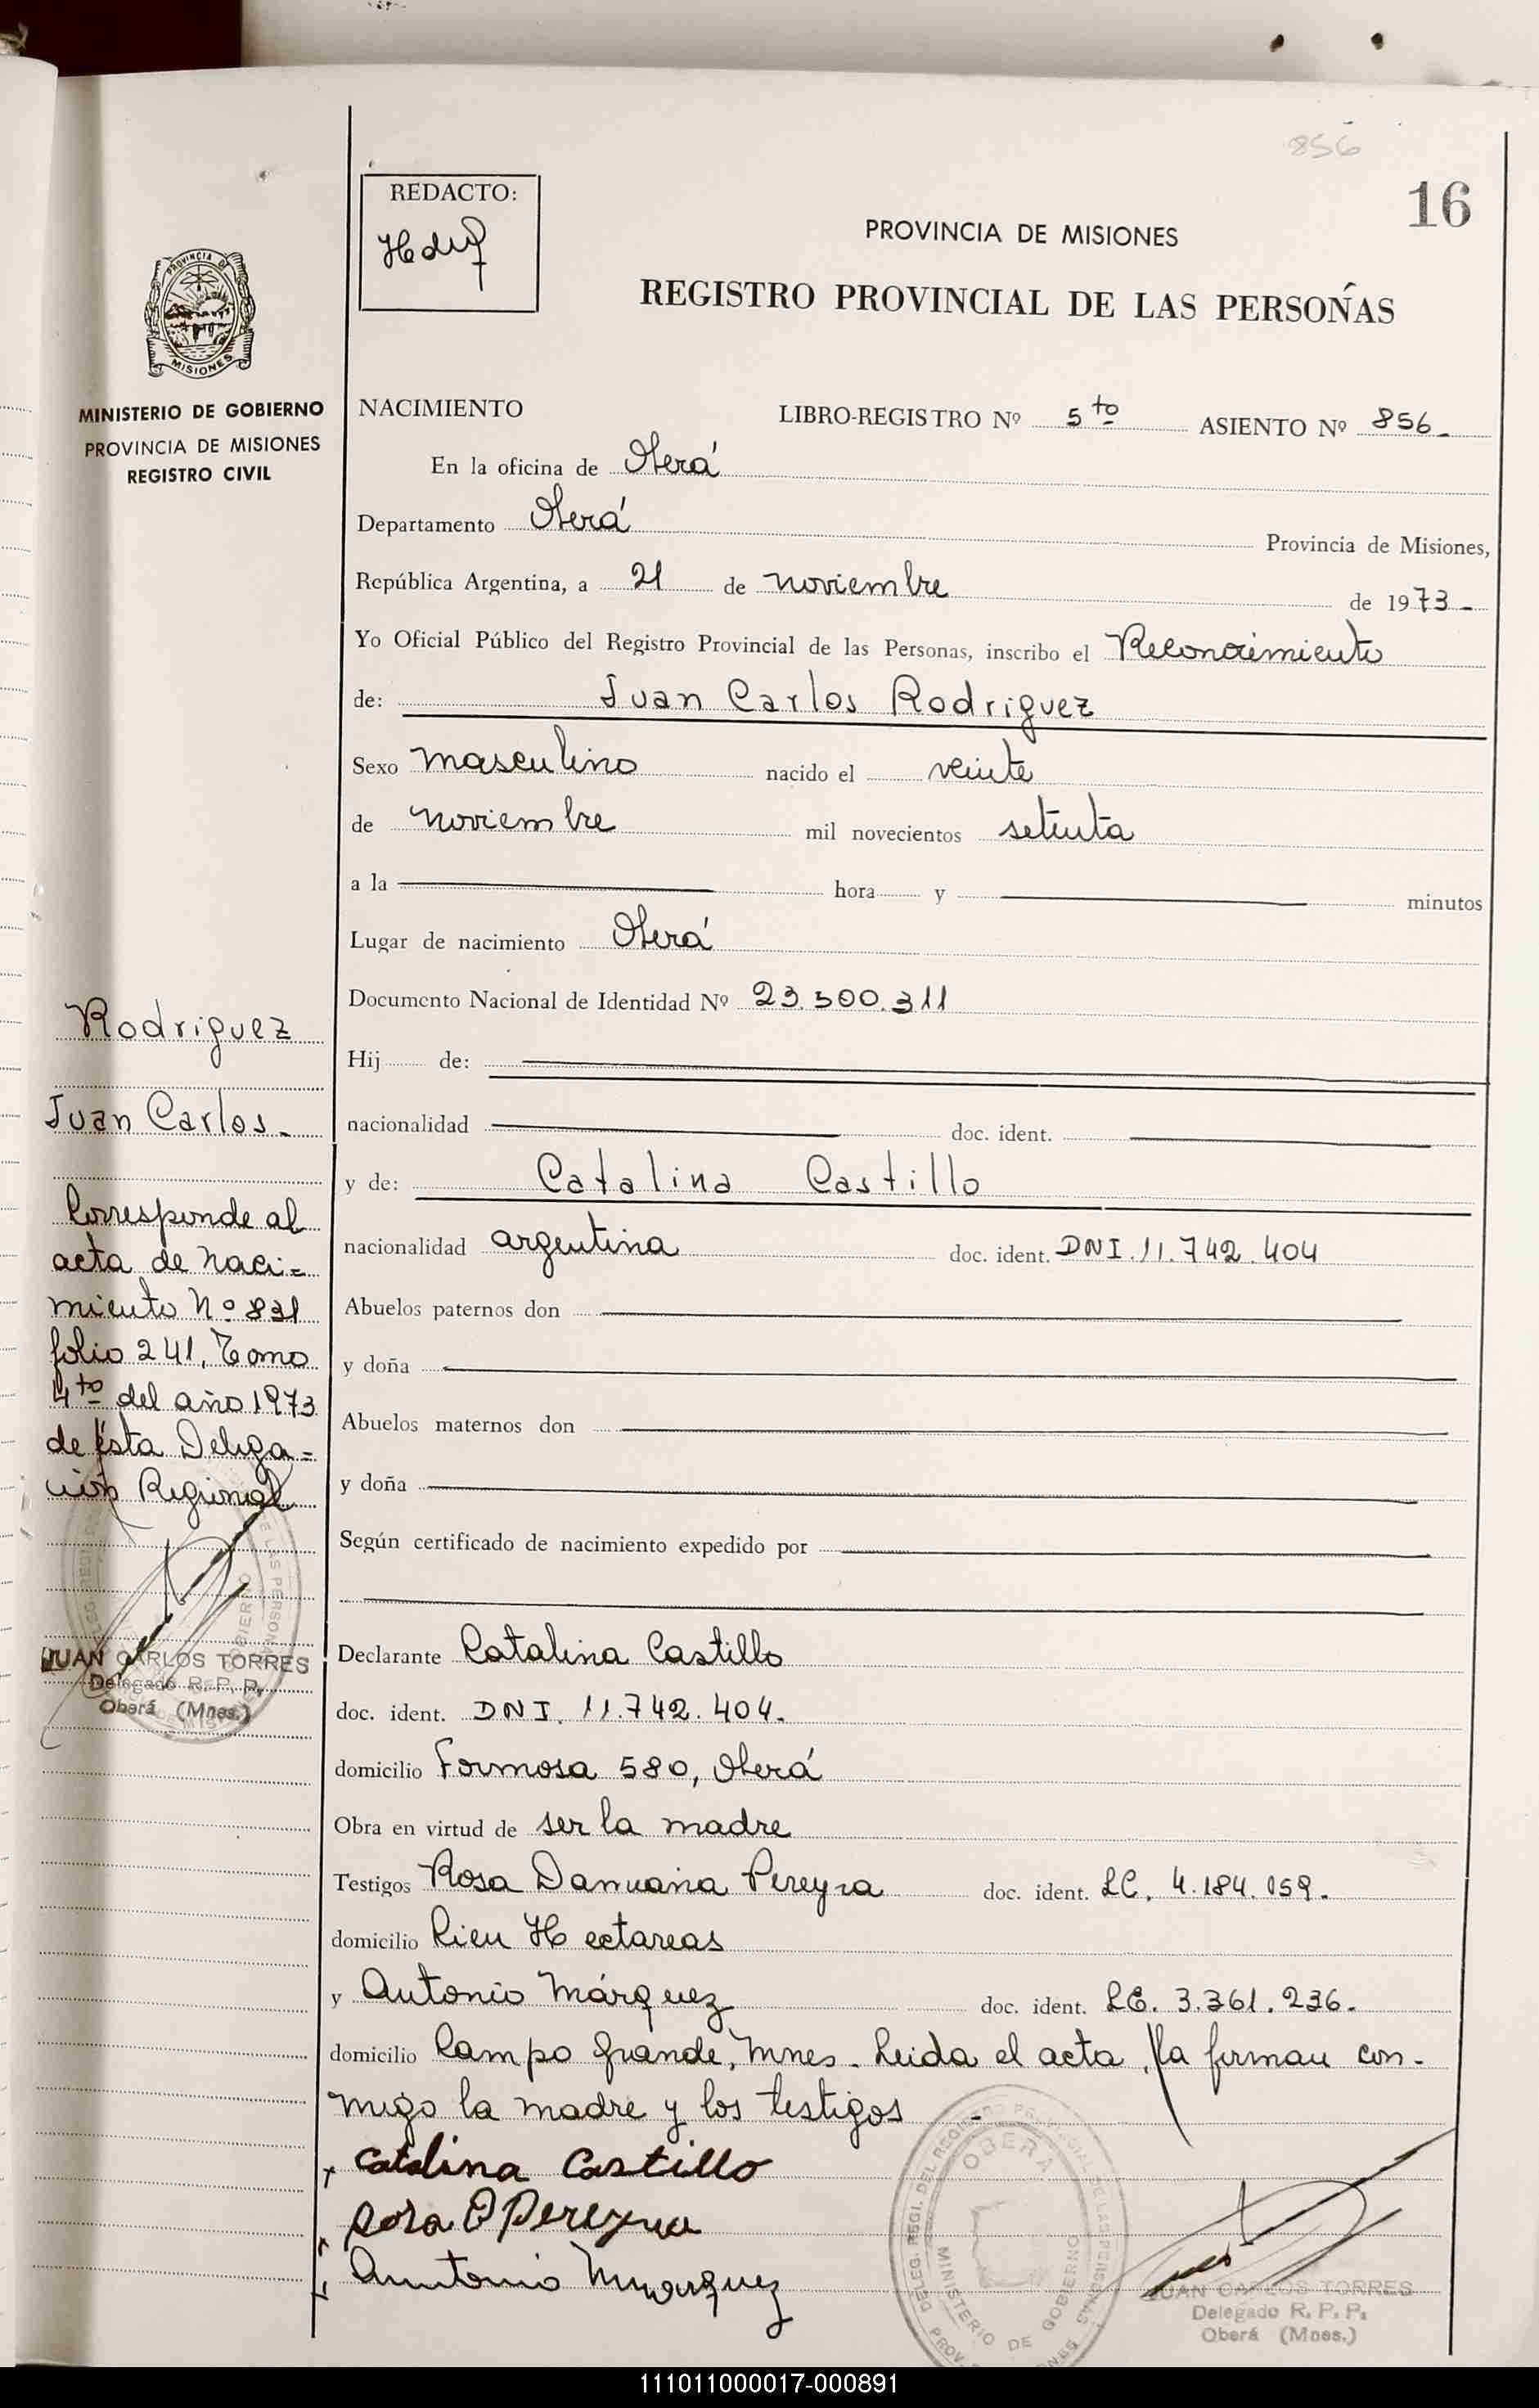 856
16
REDACTO:
PROVINCIA DE MISIONES
REGISTRO PROVINCIAL DE LAS PERSONAS
MINISTERIO DE GOBIERNO
PROVINCIA DE MISIONES
REGISTRO CIVIL
NACIMIENTO LIBRO-REGISTRO Nº 5to ASIENTO Nº 856-
En la oficina de Oberá
Departamento Oberá Provincia de Misiones,
República Argentina, a 21 de noviembre de 1973-
Yo Oficial Público del Registro Provincial de las Personas, inscribo el Reconocimiento
de: Juan Carlos Rodriguez
Sexo masculino nacido el veinte
de noviembre mil novecientos setenta
a la hora y minutos
Lugar de nacimiento Oberá
Documento Nacional de Identidad Nº 23.500.311
Hij de:
nacionalidad doc. ident.
y de: Catalina Castillo
nacionalidad argentina doc. ident. DNI.11.742.404
Abuelos paternos don
y doña
Abuelos maternos don
y doña
Según certificado de nacimiento expedido por
Declarante Catalina Castillo
doc. ident. DNI. 11.742.404.
domicilio Formosa 580, Oberá
Obra en virtud de ser la madre
Testigos Rosa Pereyra doc. ident. LC. 4.184.059.
domicilio Cien Hectareas
y Antonio Márquez doc. ident. LE. 3.361.236.
domicilio Campo Grande, Mnes. Leida el acta, la firman con-
migo la madre y los testigos
Catalina Castillo
Rosa Pereyra
Antonio Marquez
Rodriguez
Juan Carlos-
Corresponde al
acta de naci=
miento Nº 831
folio 241, Tomo
4to del año 1973
de ésta Delega=
ción Regional
JUAN CARLOS TORRES
Delegado R. P. P.
Oberá (Mnes.)
OBERA
MINISTERIO DE GOBIERNO
JUAN CARLOS TORRES
Delegado R. P. P.
Oberá (Mnes.)
111011000017-000891